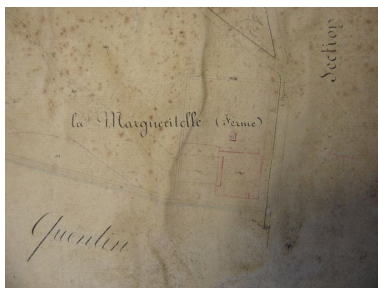 Section
la Margueritelle (Ferme)
Quentin